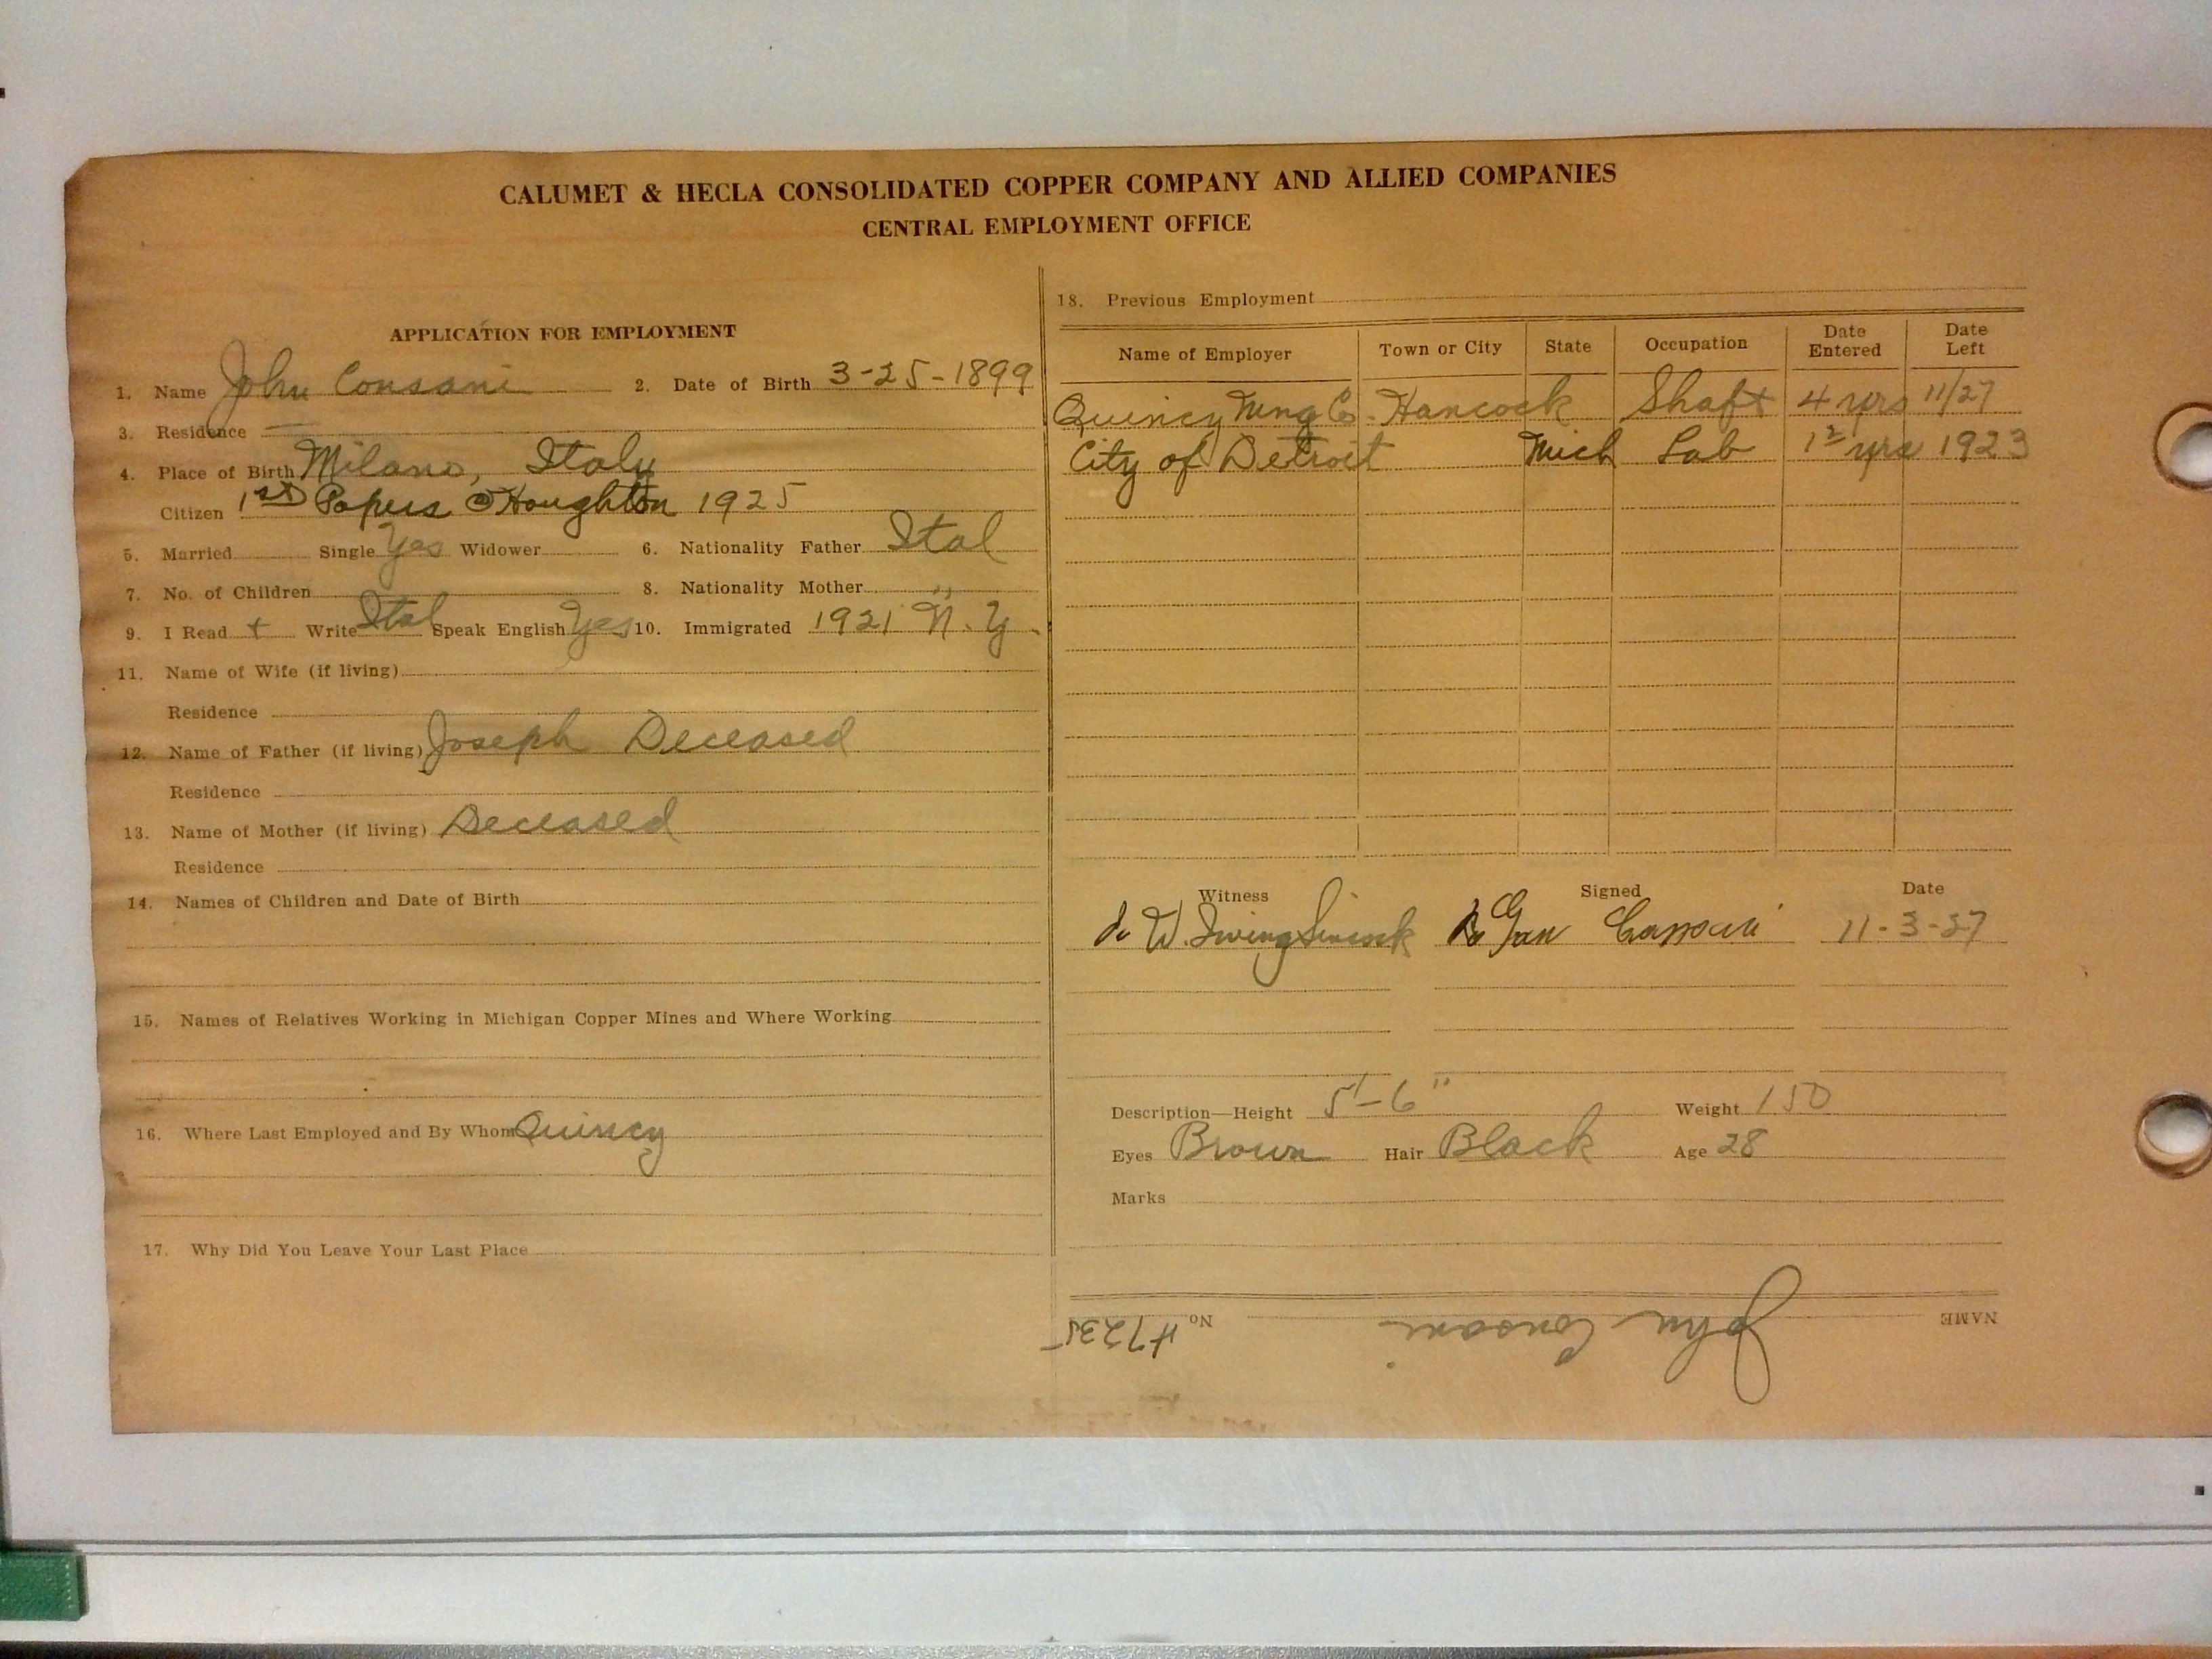 CALUMET & HECLA CONSOLIDATED COPPER COMPANY AND ALLIED COMPANIES
CENTRAL EMPLOYMENT OFFICE
APPLICATION FOR EMPLOYMENT
1. Name John Consani 2. Date of Birth 3-25-1899
3. Residence —
4. Place of Birth Milano, Italy
Citizen 1st Papers @ Houghton 1925
5. Married Single Yes Widower 6. Nationality Father Ital
7. No. of Children 8. Nationality Mother "
9. I Read + Write Ital Speak English Yes 10. Immigrated 1921 N.Y.
11. Name of Wife (if living)
Residence
12. Name of Father (if living) Joseph Deceased
Residence
13. Name of Mother (if living) Deceased
Residence
14. Names of Children and Date of Birth
15. Names of Relatives Working in Michigan Copper Mines and Where Working
16. Where Last Employed and By Whom Quincy
17. Why Did You Leave Your Last Place
18. Previous Employment
Name of Employer Town or City State Occupation Date Entered Date Left
Quincy Mng Co. Hancock Shaft 4 yrs 11/27
City of Detroit Mich Lab yrs 1923
Witness Signed Date
W. Irving 11-3-27
Description—Height 5'-6" Weight 150
Eyes Brown Hair Black Age 28
Marks
NAME John Consani No. #7235